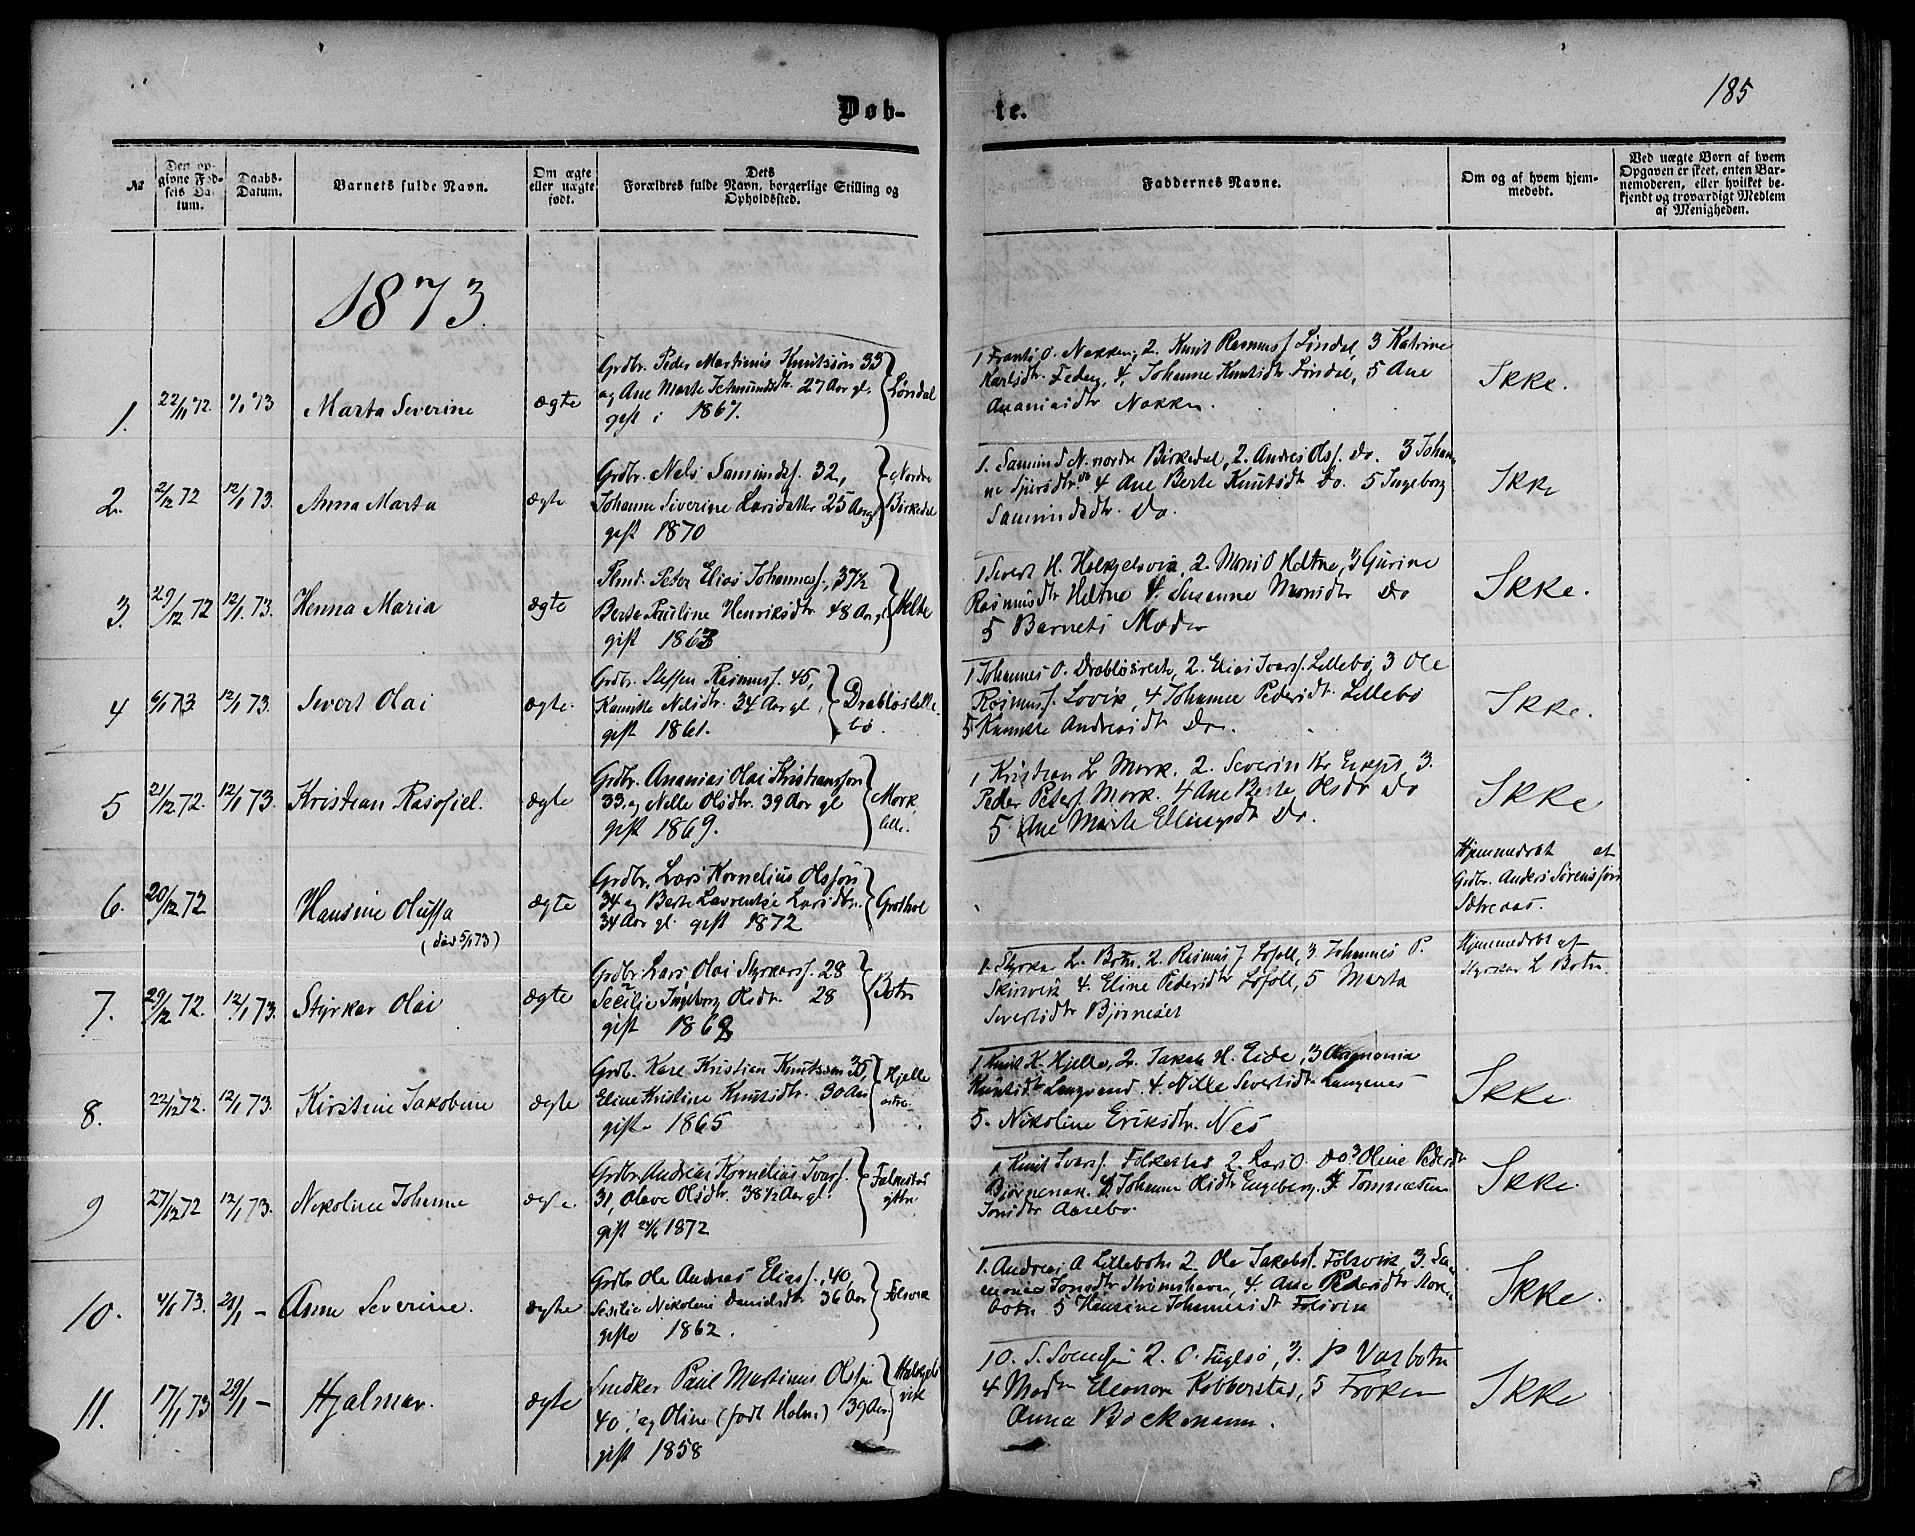 185
Døb- te.
№
Den op-
givne Fød-
sels Da-
tum.
Daabs-
Datum.
Barnets fulde Navn.
Om ægte
eller uægte
født.
Dets
Forældres fulde Navn, borgerlige Stilling og
Opholdssted.
Faddernes Navne.
Om og af hvem hjem-
medøbt.
Ved uægte Børn af hvem
Opgaven er skeet, enten Bar-
nemoderen, eller hvilket be-
kjendt og troværdigt Medlem
af Menigheden.
1873.
1. 22/11 72. 1/1 73 Marta Severine ægte
Grdbr. Peder Martinus Knutssøn 33
og Ane Marte 27 Aar gl.
gift i 1867.
Løndal
1 Frants O. Nakken, 2. Knut Rasmusf Løndal, 3 Katrine
Karlsdtr. 4, Johanne Knutsdtr Løndal, 5 Ane
Ananiasdtr Nakken.
Ikke.
2. 2/12 72 12/1 73. Anna Marta ægte
Grdbr. Nels Samundsf. 32,
Johanne Siverine Larsdatter 25 Aar gl
gift 1870
Nordre
Birkedal
1. Samund N. nordre Birkedal, 2. Andres Olsf. do. 3 Johan-
ne do 4 Ane Berte Knutsdt do. 5 Ingeborg
Samundsdtr. Do.
Ikke
3. 29/12 72 12/1 73. Henna Maria ægte
Peter Elias Johannesf., 37 1/2
Berte Pauline Henriksdtr. 48 Aar gl
gift 1863
Helte
1 Sivert H. Halkjelsvik, 2. Mons O Heltne, 3 Gurine
Rasmusdtr Heltne 4. Susanne Monsdtr Do
5 Barnets Moder
Ikke.
4 6/1 73 12/1 73. Sivert Olai ægte.
Grdbr. Steffen Rasmusf. 45,
Nelsdtr. 34 Aar gl.
gift 1861.
Drabløslille-
bø.
1 Johannes O. 2. Elias Ivarsf. Lillebø, 3 Ole
Rasmusf. Lovik, 4 Johanne Pedersdt. Lillebø
5 Andreasdt Do.
Ikke.
5 21/12 72. 12/1 73. Kristian ægte
Grdbr. Ananias Olai Kristiansson
33, og Nille Olsdtr. 39 Aar gl
gift 1869.
Mork
lille.
1 Kristian L Mork. 2. Severin Kr 3.
Peder Petersf. Mork. 4 Ane Berte Olsdr Do
5 Ane Marte Ellingsdt Do.
Ikke
6. 20/12 72 Hansine Oluffa
(død 5/1 73)
ægte
Grdbr. Lars Kornelius Olsson
34 og Berte Laurentse Larsdtr.
34 Aar gl. gift 1872
Hjemmedøbt af
Grdbr. Anders Sørensson
Sætrenaas.
7. 29/12 72. 12/1 73. Styrkar Olai ægte
Grdbr. Lars Olai Styrkarsf. 28
Secilie Ingeborg Olsdtr. 28
gift 1868
Botn
1. Styrkar L. Botn. 2. Rasmus J Løfoll, 3. Johannes P.
Skinvik 4. Eline Pedersdtr Løfoll, 5 Marta
Severtsdtr
Hjemmedøbt af
Styrkar L Botn
8. 22/12 72. 12/1 73. Kirstine Jakobine ægte
Grdb. Kare Kristian Knutsson 35,
Eline Kristine Knutsdtr. 30 Aar
gifte 1865
Hjelle
østre.
1 Knut K. Hjelle, 2. Jakob H. Eide, 3
Knutsdtr 4. Nille Severtsdt. Langenes
5. Nikoline Eriksdtr. Nes
Ikke.
9 27/12 72 12/1 73. Nikoline Johanne ægte.
Grdbr. Andreas Kornelius Ivarsf.
31, Olave Olsdtr. 38 1/2 Aar gl.
gift 24/6 1872
Folkestad
yttre.
1 Knut Ivarsf. Folkestad 2. Lars O. Do 3 Oline Pedersdtr
Bjørnenak. 4 Johanne Olsdtr Engeberg. 5
Jonsdtr Aasebø.
Ikke.
10. 4/1 73. 28/1 – Anne Severine. ægte
Grdbr Ole Andreas Eliasf., 40,
Sesilie Nikoline Danielsdtr 36 Aar
gifte 1862.
Følsvik
1. Andreas A Lillebotn 2 Ole Jakobsf. Følsvik, 3.
Jonsdtr Strømshavn 4. Ane Pedersdtr Store-
botn 5 Hansine Johannesdt Følsvik
Ikke.
11. 17/1 73 29/1 – Hjalmar. ægte
Snedker Paul Martinus Olssøn
40, og Oline (født Holm) 39 Aar
gift 1858
Halkjels
vik
1 O. S. Svendsen 2. O. Fuglsø, 3. P Vasbotn
4 Mad Eleonora Kobberstad, 5 Frøken
Anna Böckmann.
Ikke